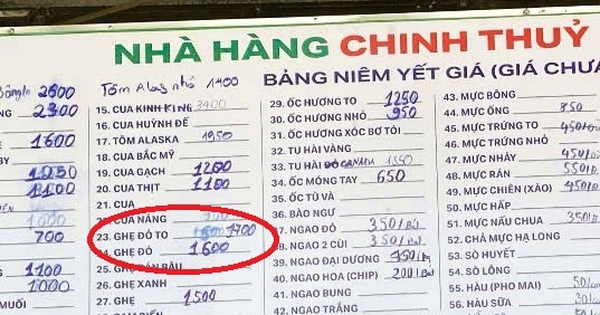 NHÀ HÀNG CHINH THUỶ
BẢNG NIÊM YẾT GIÁ (GIÁ CHƯA
2600
2300
1600
BY
1250
1100
1000
700
1100
1000
MUỐI
Tôm Alas nhỏ 1400
15. CUA KINH KING 3400
16. CUA HUỲNH ĐẾ
17. TÔM ALASKA 1950
18. CUA BẮC MỸ
19. CUA GẠCH 1200
20. CUA THỊT 1100
21. CUA
CUA NÀNG 700
23. GHẸ ĐỎ TO 1700
24. GHẸ ĐỎ 1600
25. GHẸ
26. GHẸ XANH
27. GHẸ 1500
29. ỐC HƯƠNG TO 1250
30. ỐC HƯƠNG NHỎ 950
31. ỐC HƯƠNG XÓC BƠ TỎI
32. TU HÀI VÀNG
33. TU HÀI ĐỎ CANADA 1350
34. ỐC MÓNG TAY 650
35. ỐC TÙ VÀ
36. BÀO NGƯ
37. NGAO ĐỎ 350/
38. NGAO 2 CÙI 350/
39. NGAO ĐẠI DƯƠNG 350/
40. NGAO HOA (CHIP) 200/
41. NGAO BUNG
42. NGAO TRẮNG
43. MỰC BÔNG
44. MỰC ỐNG 850
45. MỰC TRỨNG TO 450/
46. MỰC TRỨNG NHỎ
47. MỰC NHÁY 450/
48. MỰC RÁN 550/
49. MỰC CHIÊN (XÀO) 450/
50. MỰC HẤP
51. MỰC NẤU CHUA 350/
52. CHẢ MỰC HẠ LONG
53. SÒ HUYẾT
54. SÒ LÔNG
55. HÀU (PHO MAI)
56. HÀU SỮA